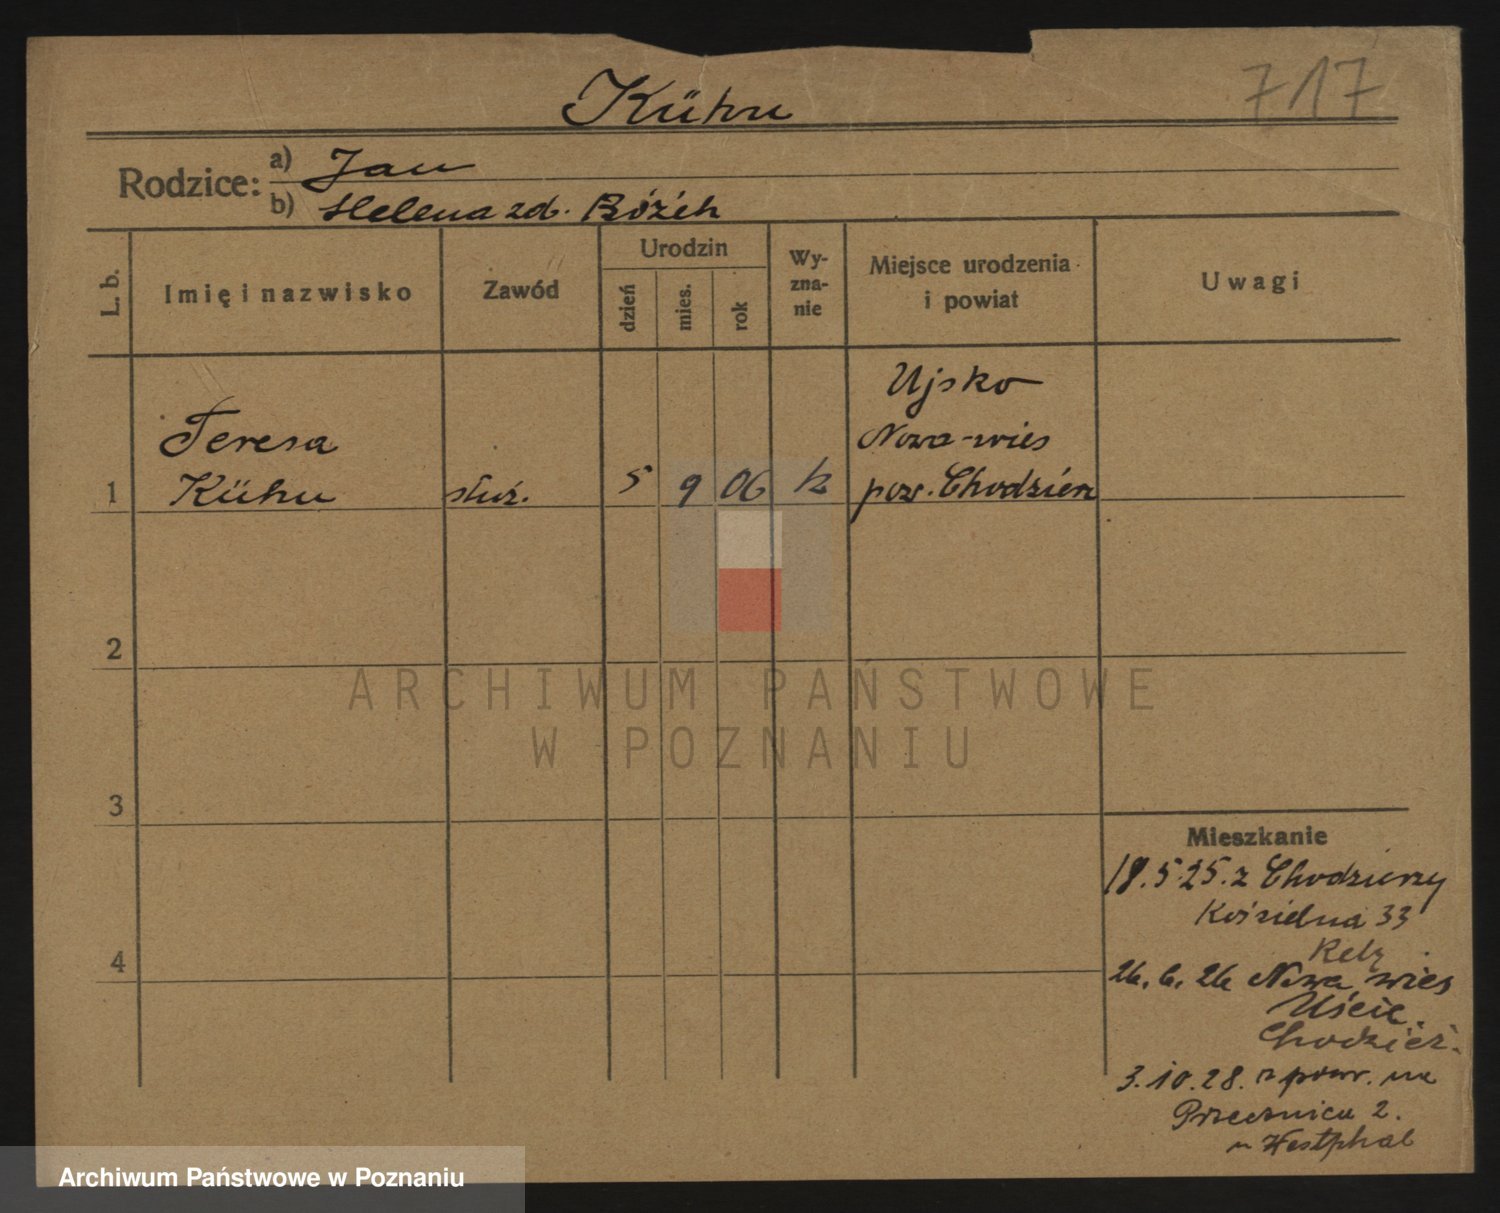 Kühn
717
Rodzice:
a) Jan
b) Helena zd. Böżeh
L. b.
Imię i nazwisko
Zawód
Urodzin
dzień
mies.
rok
Wy-
zna-
nie
Miejsce urodzenia
i powiat
Uwagi
1
Teresa
Kühn
służ.
5
9
06
k
Ujsko
Nowa-wies
pow. Chodzież
2
3
4
Mieszkanie
18.5.25. z Chodzieży
Kościelna 33
26.6.26 Nowa wies
Uście.
Chodzież.
3.10.28. z powr. na
Przecznica 2.
u Westphal
ARCHIWUM PAŃSTWOWE
W POZNANIU
Archiwum Państwowe w Poznaniu